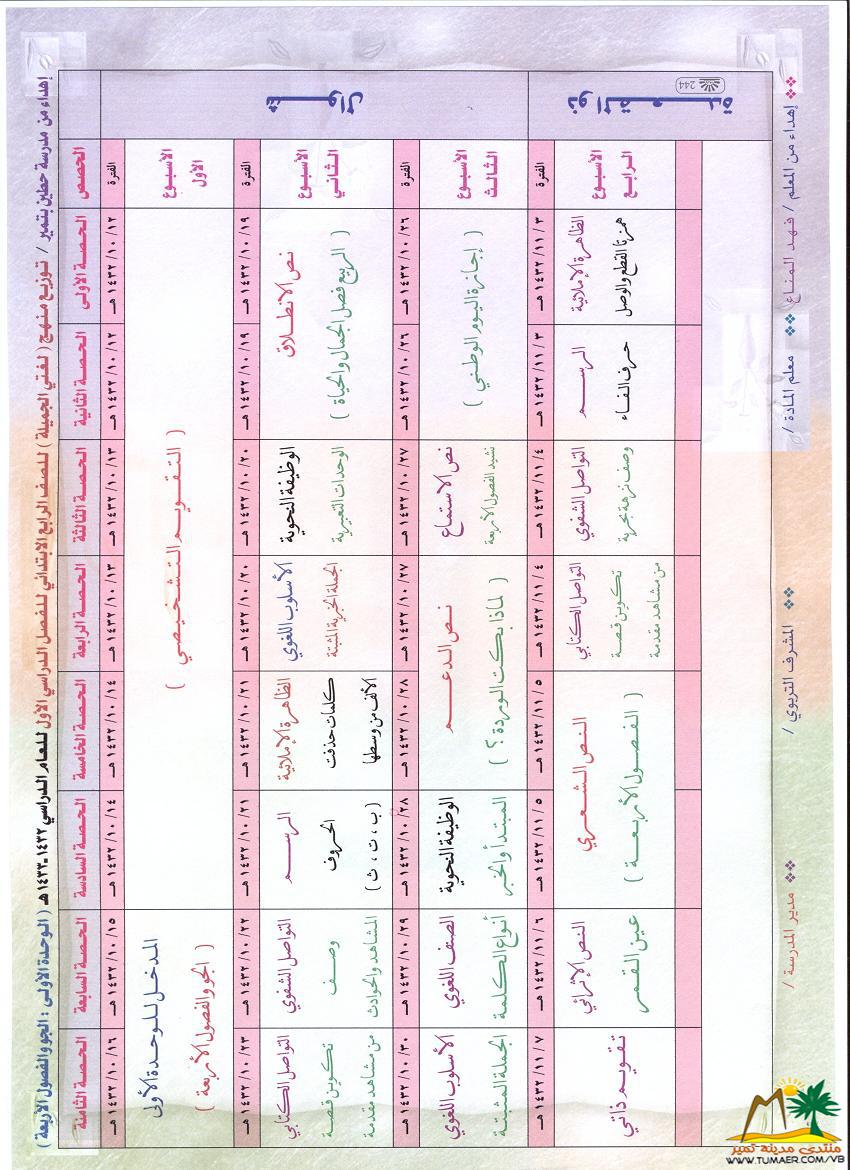 إهداء من مدرسة حطين بتمير / توزيع منهج ( لغتي الجميلة ) للصف الرابع الابتدائي للفصل الدراسي الأول للعام الدراسي ١٤٣٢-١٤٣٣ هـ ( الوحدة الأولى : الجو والفصول الأربعة )
الحصص
الحصة الأولى
الحصة الثانية
الحصة الثالثة
الحصة الرابعة
الحصة الخامسة
الحصة السادسة
الحصة السابعة
الحصة الثامنة
شوال
الفترة
١٤٣٢/١٠/١٢ هـ
١٤٣٢/١٠/١٢ هـ
١٤٣٢/١٠/١٣ هـ
١٤٣٢/١٠/١٣ هـ
١٤٣٢/١٠/١٤ هـ
١٤٣٢/١٠/١٤ هـ
١٤٣٢/١٠/١٥ هـ
١٤٣٢/١٠/١٦ هـ
الأسبوع
الأول
( التقويم التشخيصي )
المدخل للوحدة الأولى
( الجو والفصول الأربعة )
الفترة
١٤٣٢/١٠/١٩ هـ
١٤٣٢/١٠/١٩ هـ
١٤٣٢/١٠/٢٠ هـ
١٤٣٢/١٠/٢٠ هـ
١٤٣٢/١٠/٢١ هـ
١٤٣٢/١٠/٢١ هـ
١٤٣٢/١٠/٢٢ هـ
١٤٣٢/١٠/٢٣ هـ
الأسبوع
الثاني
نص الانطلاق
( الربيع فصل الجمال والحياة )
الوظيفة النحوية
الوحدات التعبيرية
الأسلوب اللغوي
الجملة الخبرية المثبتة
الظاهرة الإملائية
كلمات حذفت
الألف من وسطها
الرسم
الحروف
( ب ، ت ، ث )
التواصل الشفوي
وصف
المشاهد والحوادث
التواصل الكتابي
تكوين قصة
من مشاهد مقدمة
الفترة
١٤٣٢/١٠/٢٦ هـ
١٤٣٢/١٠/٢٦ هـ
١٤٣٢/١٠/٢٧ هـ
١٤٣٢/١٠/٢٧ هـ
١٤٣٢/١٠/٢٨ هـ
١٤٣٢/١٠/٢٨ هـ
١٤٣٢/١٠/٢٩ هـ
١٤٣٢/١٠/٣٠ هـ
الأسبوع
الثالث
( إجازة اليوم الوطني )
نص الاستماع
نشيد الفصول الأربعة
نص الدعم
( لماذا بكت الوردة ؟ )
الوظيفة النحوية
المبتدأ والخبر
الصنف اللغوي
أنوع الكلمة
الأسلوب اللغوي
الجملة المثبتة
ذو القعدة
244
الفترة
١٤٣٢/١١/٣ هـ
١٤٣٢/١١/٣ هـ
١٤٣٢/١١/٤ هـ
١٤٣٢/١١/٤ هـ
١٤٣٢/١١/٥ هـ
١٤٣٢/١١/٥ هـ
١٤٣٢/١١/٦ هـ
١٤٣٢/١١/٧ هـ
الأسبوع
الرابع
الظاهرة الإملائية
همزتا القطع والوصل
الرسم
حرف الفاء
التواصل الشفوي
وصف نزهة بحرية
التواصل الكتابي
تكوين قصة
من مشاهد مقدمة
النص الشعري
( الفصول الأربعة )
النص الإثرائي
عين القمر
تقويم ذاتي
إهداء من المعلم / فهد المناع
معلم المادة /
المشرف التربوي /
مدير المدرسة /
منتدى مدينة تمير
WWW.TUMAER.COM/VB